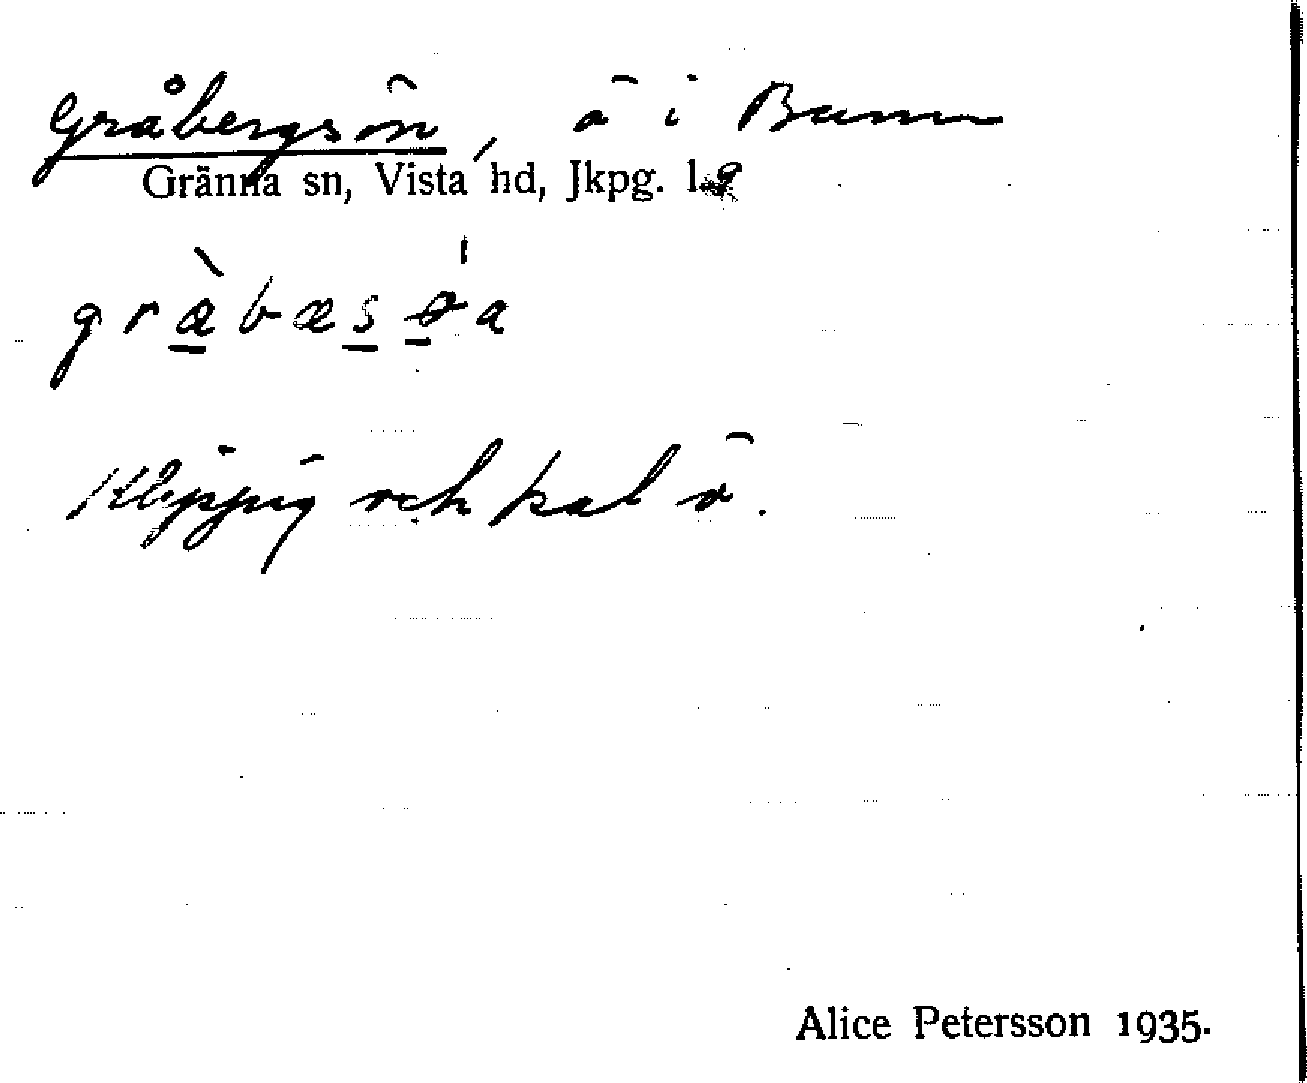 Gråbergsön, ö i Bunn
Gränna sn, Vista hd, Jkpg. l.
gràbæsøa
Klippig och kal ö.
Alice Petersson 1935.